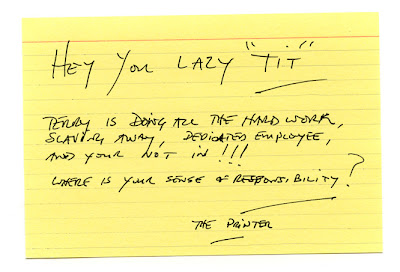 HEY YOU LAZY "TIT"
TERRY IS DOING ALL THE HARD WORK,
SLAVING AWAY, DEDICATED EMPLOYEE,
AND YOUR NOT IN!!!
WHERE IS YOUR SENSE OF RESPONSIBILITY?
THE PRINTER